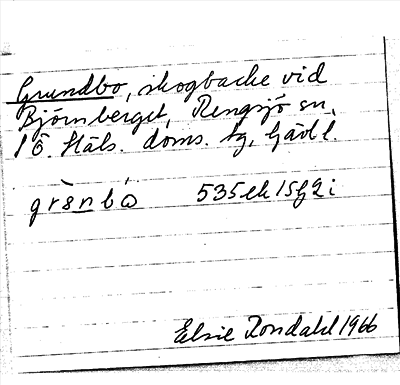 Grundbo, skogbacke vid
Björnberget, Rengsjö sn,
Ö. Häls. doms. tg, Gävl l.
535 ek 15 f 2 i
Elsie Rondahl 1966